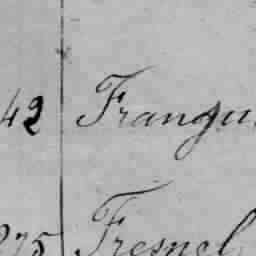 42 Frangu
275 Fresnel